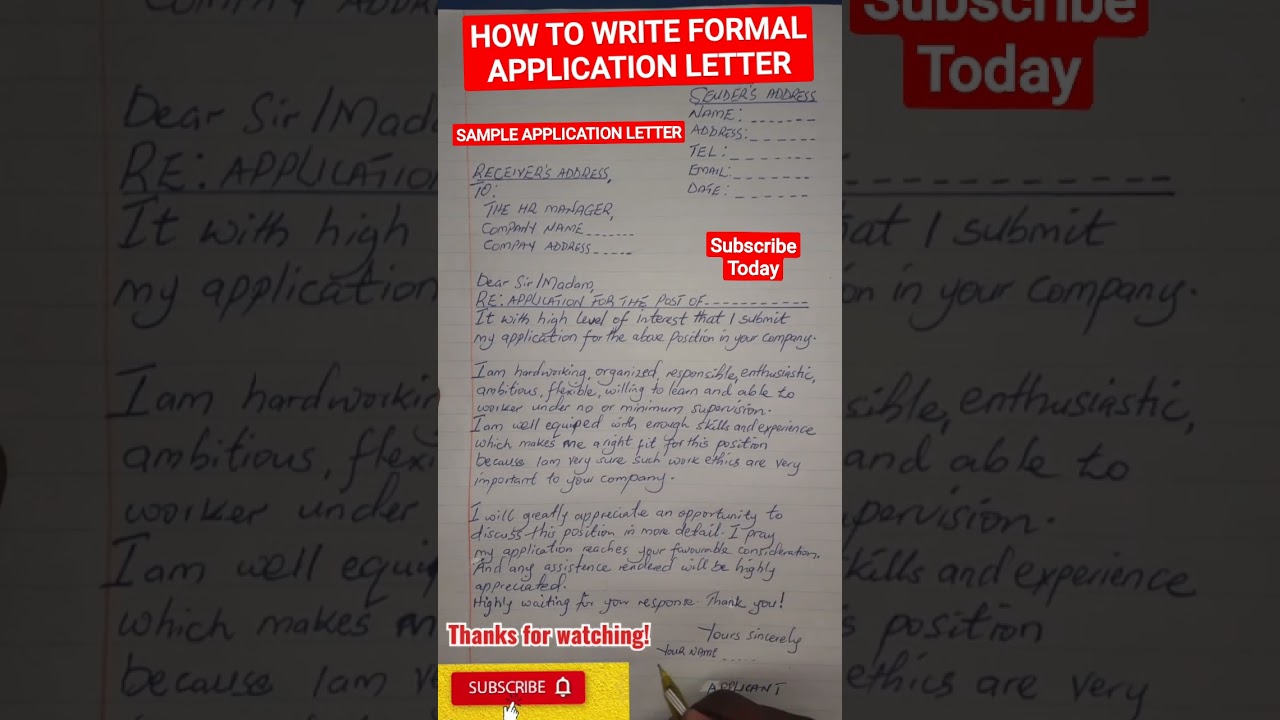 HOW TO WRITE FORMAL
APPLICATION LETTER
SENDER'S ADDRESS
NAME: _ _ _ _ _ _
ADDRESS: _ _ _ _ _ _
TEL: _ _ _ _ _ _
EMAIL: _ _ _ _ _ _
DATE: _ _ _ _ _ _
SAMPLE APPLICATION LETTER
RECEIVER'S ADDRESS,
TO:
THE HR MANAGER,
COMPANY NAME _ _ _ _ _ _
COMPAY ADDRESS _ _ _ _ _
Subscribe
Today
Dear Sir/Madam,
RE: APPLICATION FOR THE POST OF _ _ _ _ _ _ _ _ _ _
It with high level of interest that I submit
my application for the above position in your company.
I am hardworking, organized, responsible, enthusiastic,
ambitious, flexible, willing to learn and able to
worker under no or minimum supervision.
I am well equiped with enough skills and experience
which makes me a right fit for this position
because I am very sure such work ethics are very
important to your company.
I will greatly appreciate an opportunity to
discuss this position in more detail. I pray
my application reaches your favourable consideration.
And any assistence rendered will be highly
appreciated.
Highly waiting for your response. Thank you!
Thanks for watching!
Yours sincerely
YOUR NAME _ _ _ _
APPLICANT
SUBSCRIBE
Dear Sir/Mada
RE: APPLICATION
It with high
my application
I am hardworkin
ambitious, flexi
worker under
I am well equi
which makes m
because I am v
Subscribe
Today
at I submit
on in your company.
sible, enthusiastic,
and able to
pervision.
skills and experience
s position
ethics are very